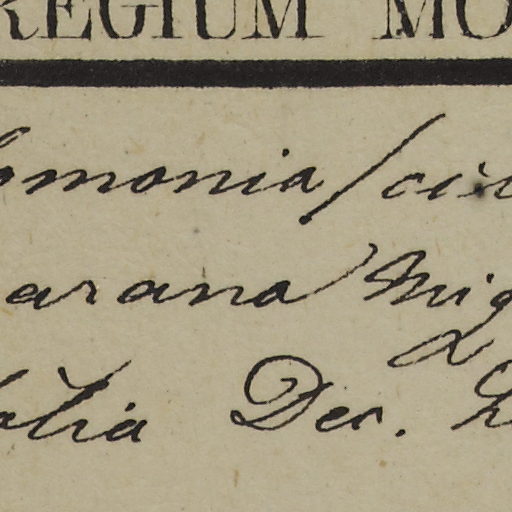 REGIUM MO
omonia / cir
arana Mig
olia Dec. L